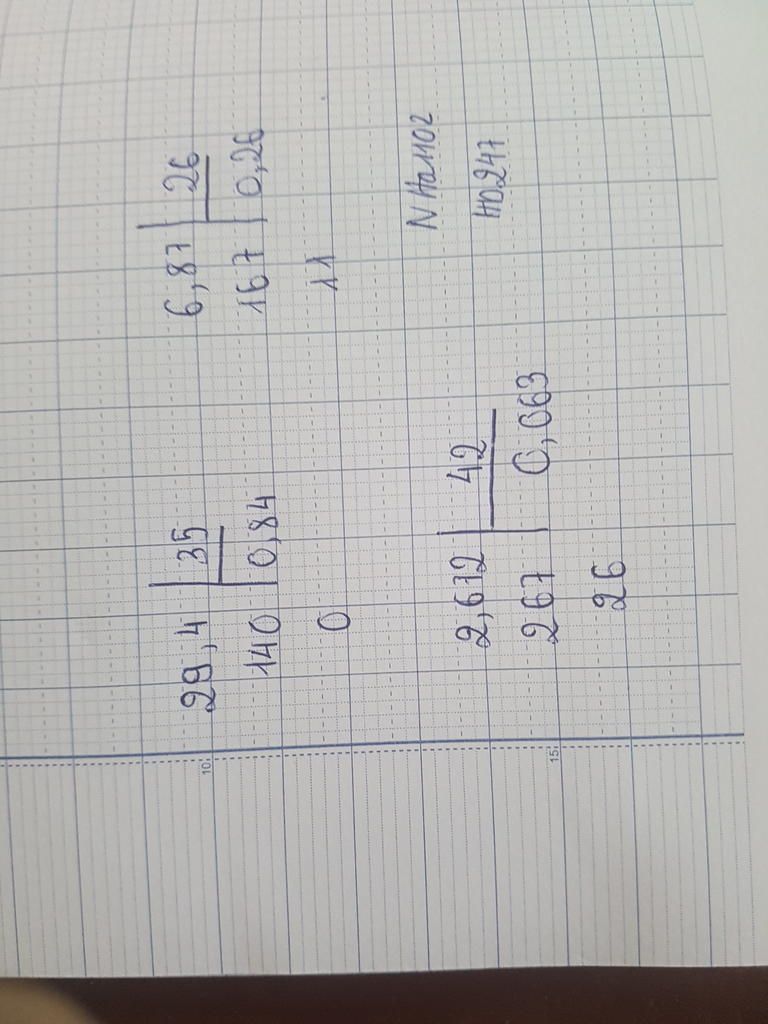 29,4 | 35
140 | 0,84
0
6,87 | 26
167 | 0,26
11
2,672 | 42
267 | 0,063
26
10
15